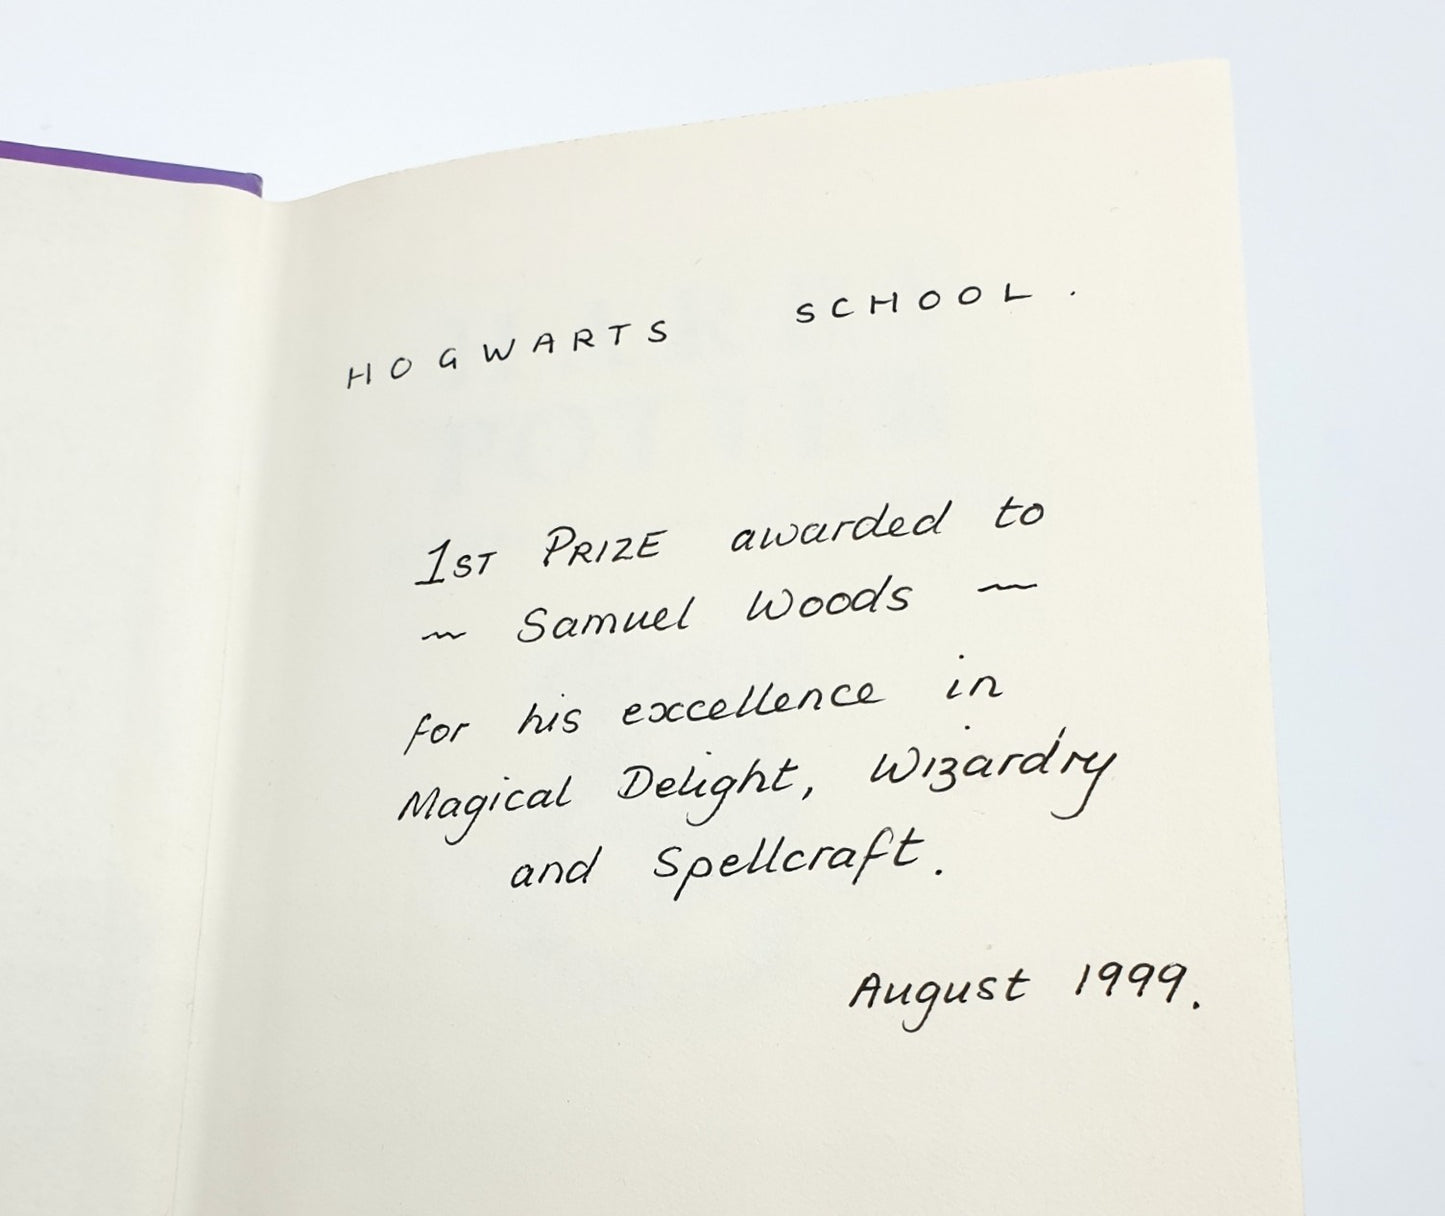 HOGWARTS SCHOOL.
1ST PRIZE awarded to
~ Samuel Woods ~
for his excellence in
Magical Delight, Wizardry
and Spellcraft.
August 1999.